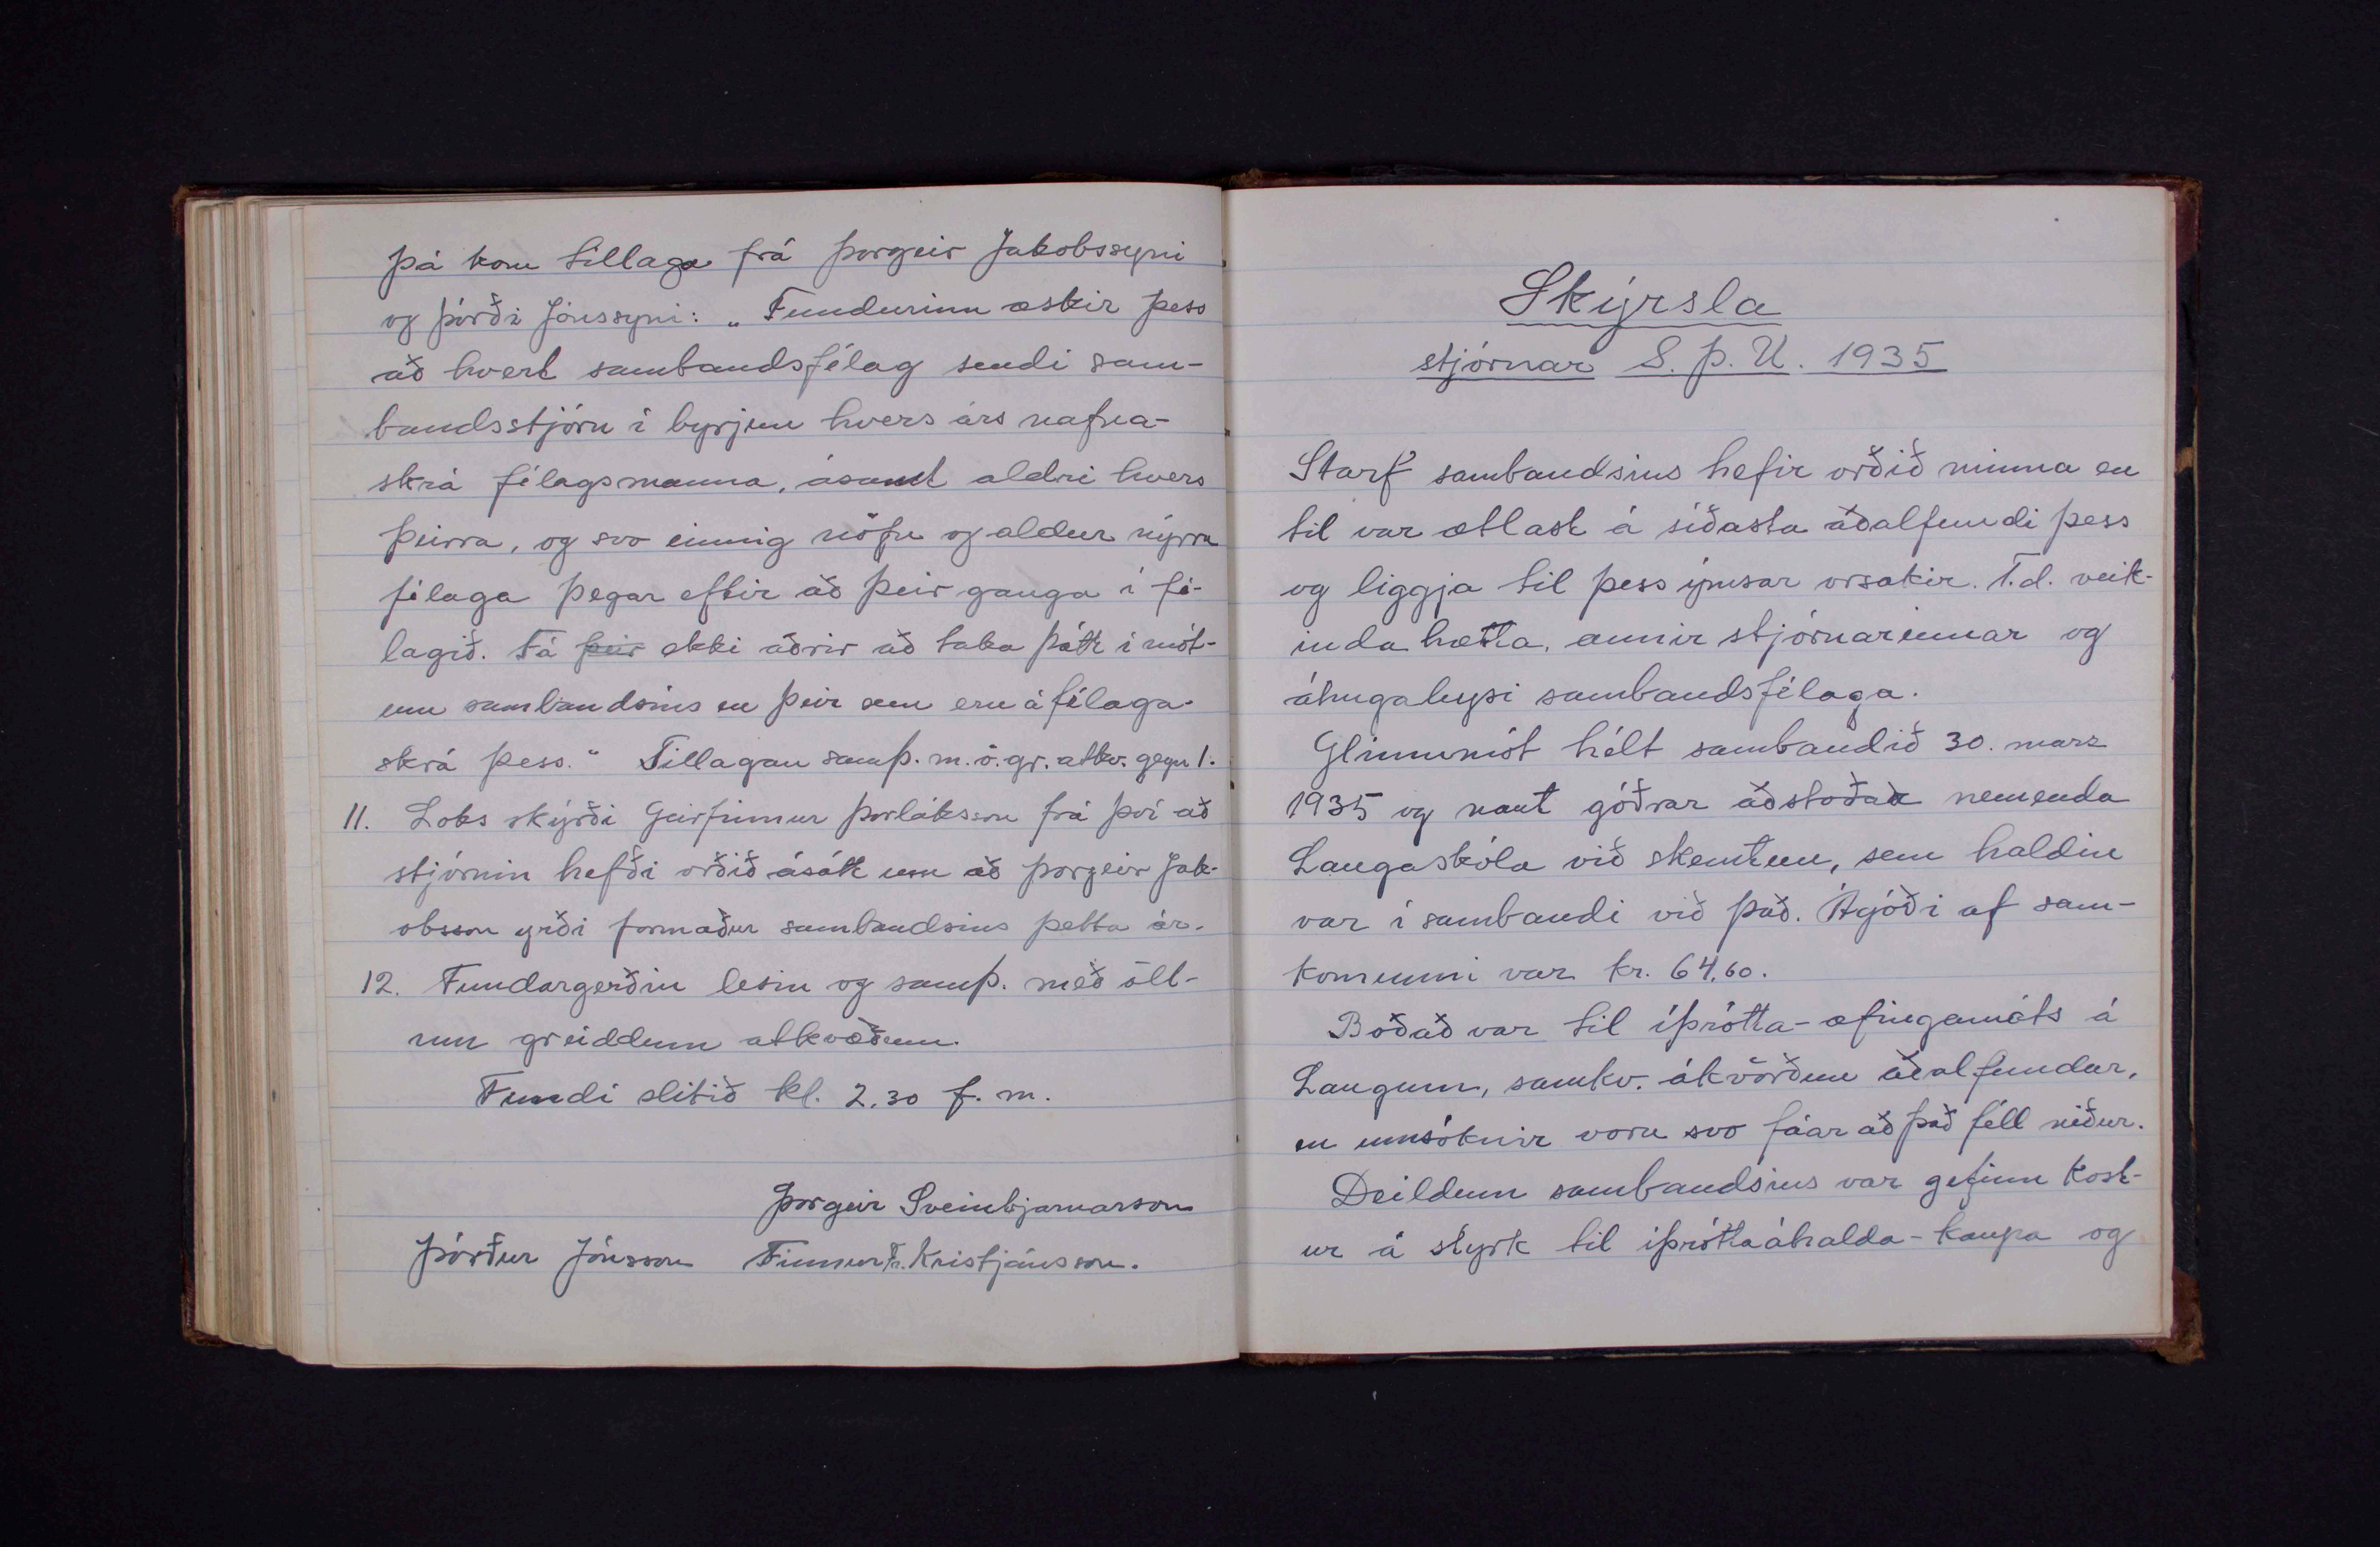 Þá kom tillaga frá Þorgeir Jakobssyni
og Þórði Jónssyni: „Fundurinn æskir þess
að hvert sambandsfélag sendi sam-
bandsstjórn í byrjun hvers árs nafna-
skrá félagsmanna, ásamt aldri hvers
þeirra, og svo einnig nöfn og aldur nýrra
félaga þegar eftir að þeir ganga í fé-
lagið. Fá þeir ekki aðrir að taka þátt í mót-
um sambandsins en þeir sem eru á félaga-
skrá þess." Tillagan samþ. m. ö. gr. atkv. gegn 1.
11. Loks skýrði Geirfinnur Þorláksson frá því að
stjórnin hefði orðið ásátt um að Þorgeir Jak-
obsson yrði formaður sambandsins þetta ár.
12. Fundargerðin lesin og samþ. með öll-
um greiddum atkvæðum.
Fundi slitið kl. 2.30 f. m.
Þorgeir Sveinbjarnarson
Þórður Jónsson Finnur Fr. Kristjánsson.
Skýrsla
stjórnar S. Þ. U. 1935
Starf sambandsins hefir orðið minna en
til var ætlast á síðasta aðalfundi þess
og liggja til þess ýmsar orsakir. T.d. veik-
inda hætta, annir stjórnarinnar og
áhugaleysi sambandsfélaga.
Glímumót hélt sambandið 30. marz
1935 og naut góðrar aðstoðar nemenda
Laugaskóla við skemtun, sem haldin
var í sambandi við það. Ágóði af sam-
komunni var kr. 64.60.
Boðað var til íþrótta-æfingamóts á
Laugum, samkv. ákvörðun aðalfundar,
en umsóknir voru svo fáar að það féll niður.
Deildum sambandsins var gefinn kost-
ur á styrk til íþróttaáhalda-kaupa og